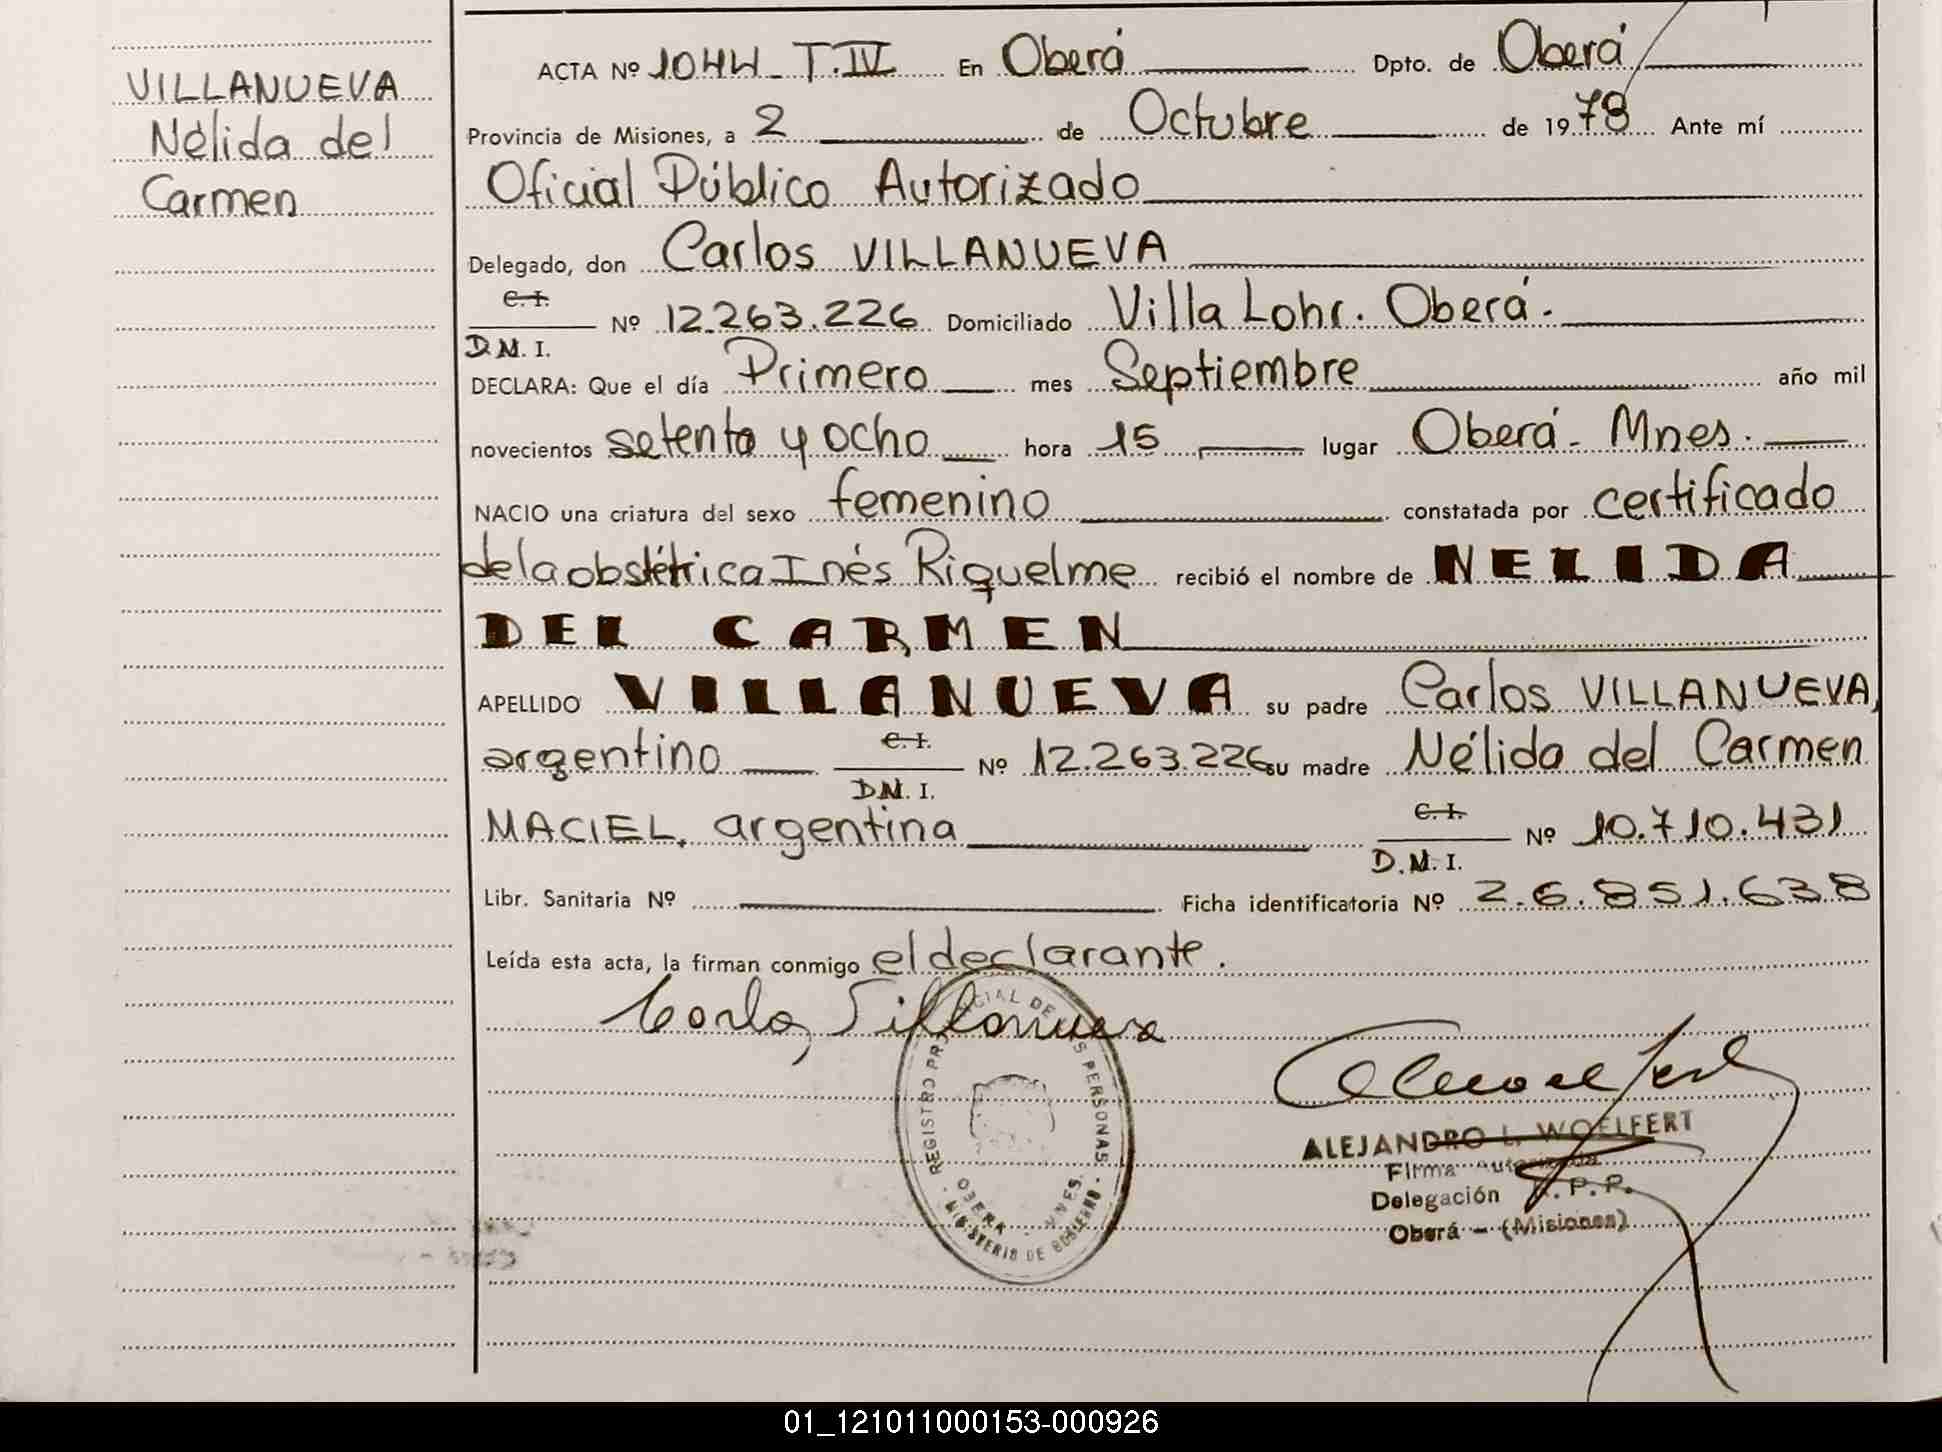 VILLANUEVA
Nélida del
Carmen
ACTA Nº 1044_ T.IV En Oberá Dpto. de Oberá
Provincia de Misiones, a 2 de Octubre de 1978 Ante mí
Oficial Público Autorizado
Delegado, don Carlos VILLANUEVA
C. I.
Nº 12.263.226 Domiciliado Villa Lohr. Oberá.
D.N. I.
DECLARA: Que el día Primero mes Septiembre año mil
novecientos setenta y ocho hora 15 lugar Oberá - Mnes.
NACIO una criatura del sexo femenino constatada por certificado
de la obstétrica Inés Riquelme recibió el nombre de NELIDA
DEL CARMEN
APELLIDO VILLANUEVA su padre Carlos VILLANUEVA,
argentino C. I. Nº 12.263.226 su madre Nélida del Carmen
D.N. I.
MACIEL, argentina C. I. Nº 10.710.431
D.N. I.
Libr. Sanitaria Nº Ficha identificatoria Nº 26.851.638
Leída esta acta, la firman conmigo el declarante.
Carlos Villanueva
REGISTRO PROVINCIAL DE LAS PERSONAS
OBERA - MNES.
MINISTERIO DE GOBIERNO
ALEJANDRO L. WOELFERT
Firma Autorizada
Delegación R. P. P.
Oberá - (Misiones)
01_121011000153-000926